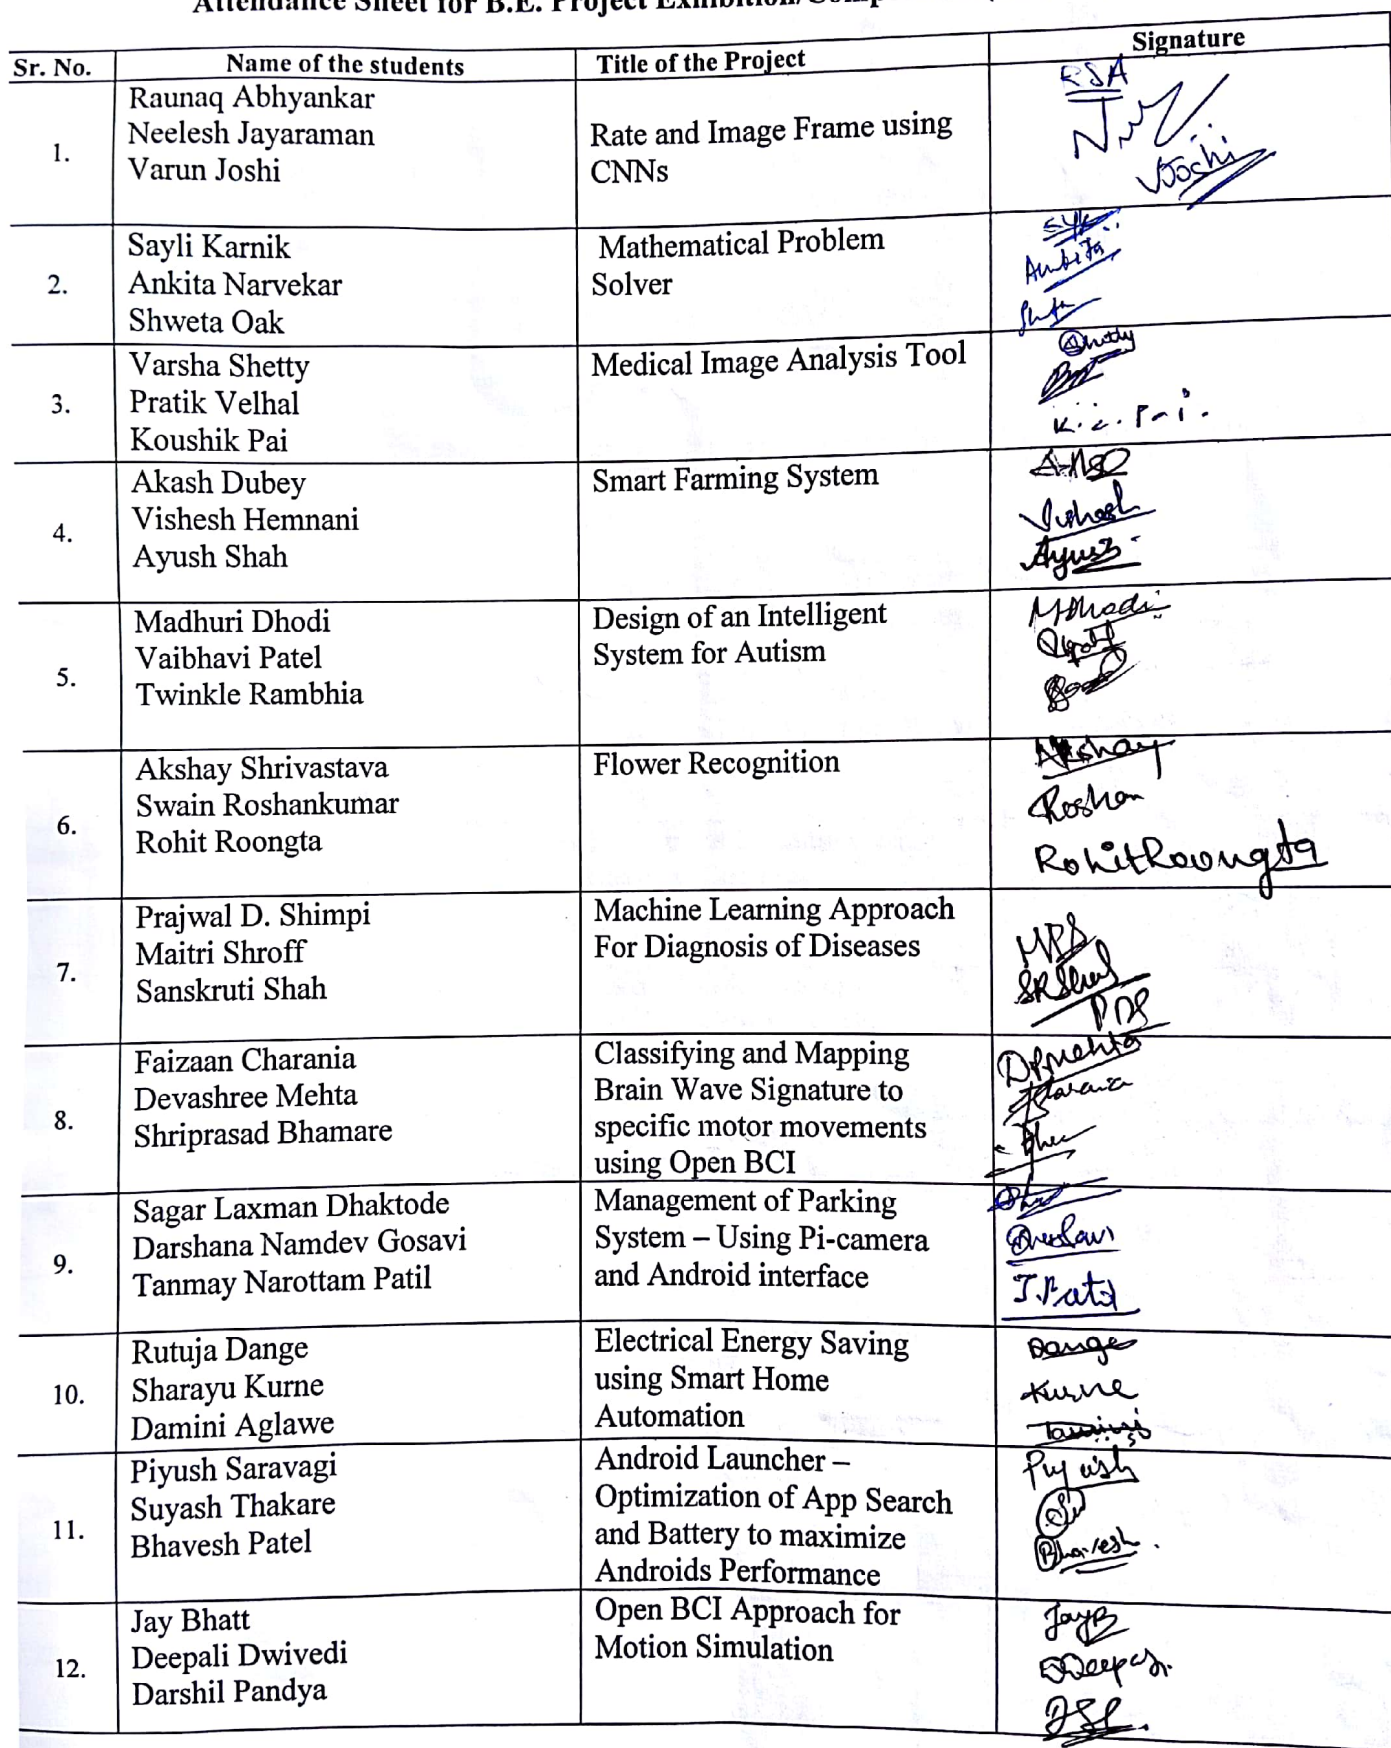 Attendance Sheet for B.E. Project Exhibition/
Sr. No. Name of the students Title of the Project Signature
1.
Raunaq Abhyankar
Neelesh Jayaraman
Varun Joshi
Rate and Image Frame using
CNNs
RSA
VJoshi
2.
Sayli Karnik
Ankita Narvekar
Shweta Oak
Mathematical Problem
Solver
Ankita
3.
Varsha Shetty
Pratik Velhal
Koushik Pai
Medical Image Analysis Tool
4.
Akash Dubey
Vishesh Hemnani
Ayush Shah
Smart Farming System
Vishesh
Ayush
5.
Madhuri Dhodi
Vaibhavi Patel
Twinkle Rambhia
Design of an Intelligent
System for Autism
MDhodi
6.
Akshay Shrivastava
Swain Roshankumar
Rohit Roongta
Flower Recognition
Akshay
Roshan
Rohit Roongta
7.
Prajwal D. Shimpi
Maitri Shroff
Sanskruti Shah
Machine Learning Approach
For Diagnosis of Diseases
MPS
SRShah
PDS
8.
Faizaan Charania
Devashree Mehta
Shriprasad Bhamare
Classifying and Mapping
Brain Wave Signature to
specific motor movements
using Open BCI
DPMehta
9.
Sagar Laxman Dhaktode
Darshana Namdev Gosavi
Tanmay Narottam Patil
Management of Parking
System – Using Pi-camera
and Android interface
T.Patil
10.
Rutuja Dange
Sharayu Kurne
Damini Aglawe
Electrical Energy Saving
using Smart Home
Automation
Dange
Kurne
11.
Piyush Saravagi
Suyash Thakare
Bhavesh Patel
Android Launcher –
Optimization of App Search
and Battery to maximize
Androids Performance
Piyush
Bhavesh
12.
Jay Bhatt
Deepali Dwivedi
Darshil Pandya
Open BCI Approach for
Motion Simulation
JayB